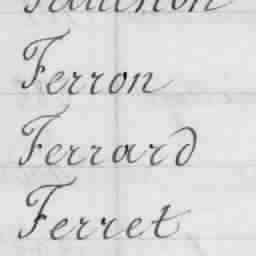 Ferron
Ferrard
Ferret